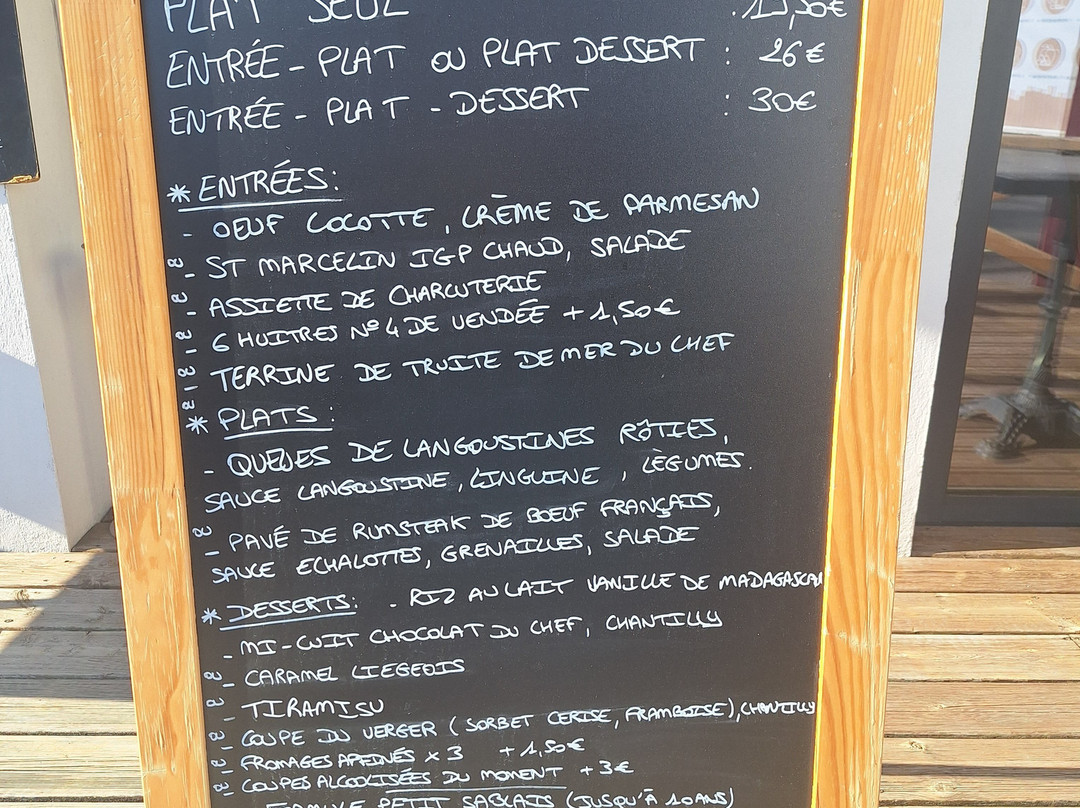 PLAT SEUL
ENTRÉE - PLAT OU PLAT DESSERT : 26€
ENTRÉE - PLAT - DESSERT : 30€
* ENTRÉES:
- OEUF COCOTTE, CRÈME DE PARMESAN
- ST MARCELIN IGP CHAUD, SALADE
- ASSIETTE DE CHARCUTERIE
- 6 HUITRES N°4 DE VENDÉE + 1,50€
- TERRINE DE TRUITE DE MER DU CHEF
* PLATS:
- QUEUES DE LANGOUSTINES RÔTIES,
SAUCE LANGOUSTINE, LINGUINE, LÈGUMES.
- PAVÉ DE RUMSTEAK DE BOEUF FRANÇAIS,
SAUCE ECHALOTTES, GRENAILLES, SALADE
* DESSERTS: - RIZ AU LAIT VANILLE DE MADAGASCAR
- MI-CUIT CHOCOLAT DU CHEF, CHANTILLY
- CARAMEL LIEGEOIS
- TIRAMISU
- COUPE DU VERGER (SORBET CERISE, FRAMBOISE), CHANTILLY
- FROMAGES AFFINÉS x 3 + 1,50€
- COUPES ALCOOLISÉES DU MOMENT + 3€
FORMULE PETIT SABLAIS (JUSQU'À 10 ANS)